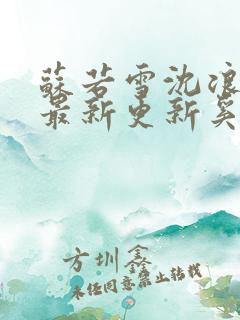 苏若雪沈浪
最新更新奚
方圳鑫
未经同意禁止转载